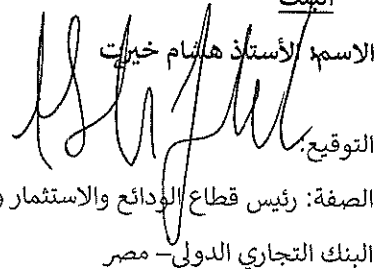 البنك
الاسم: الأستاذ هشام خيرت
التوقيع:
الصفة: رئيس قطاع الودائع والاستثمار و
البنك التجاري الدولي– مصر